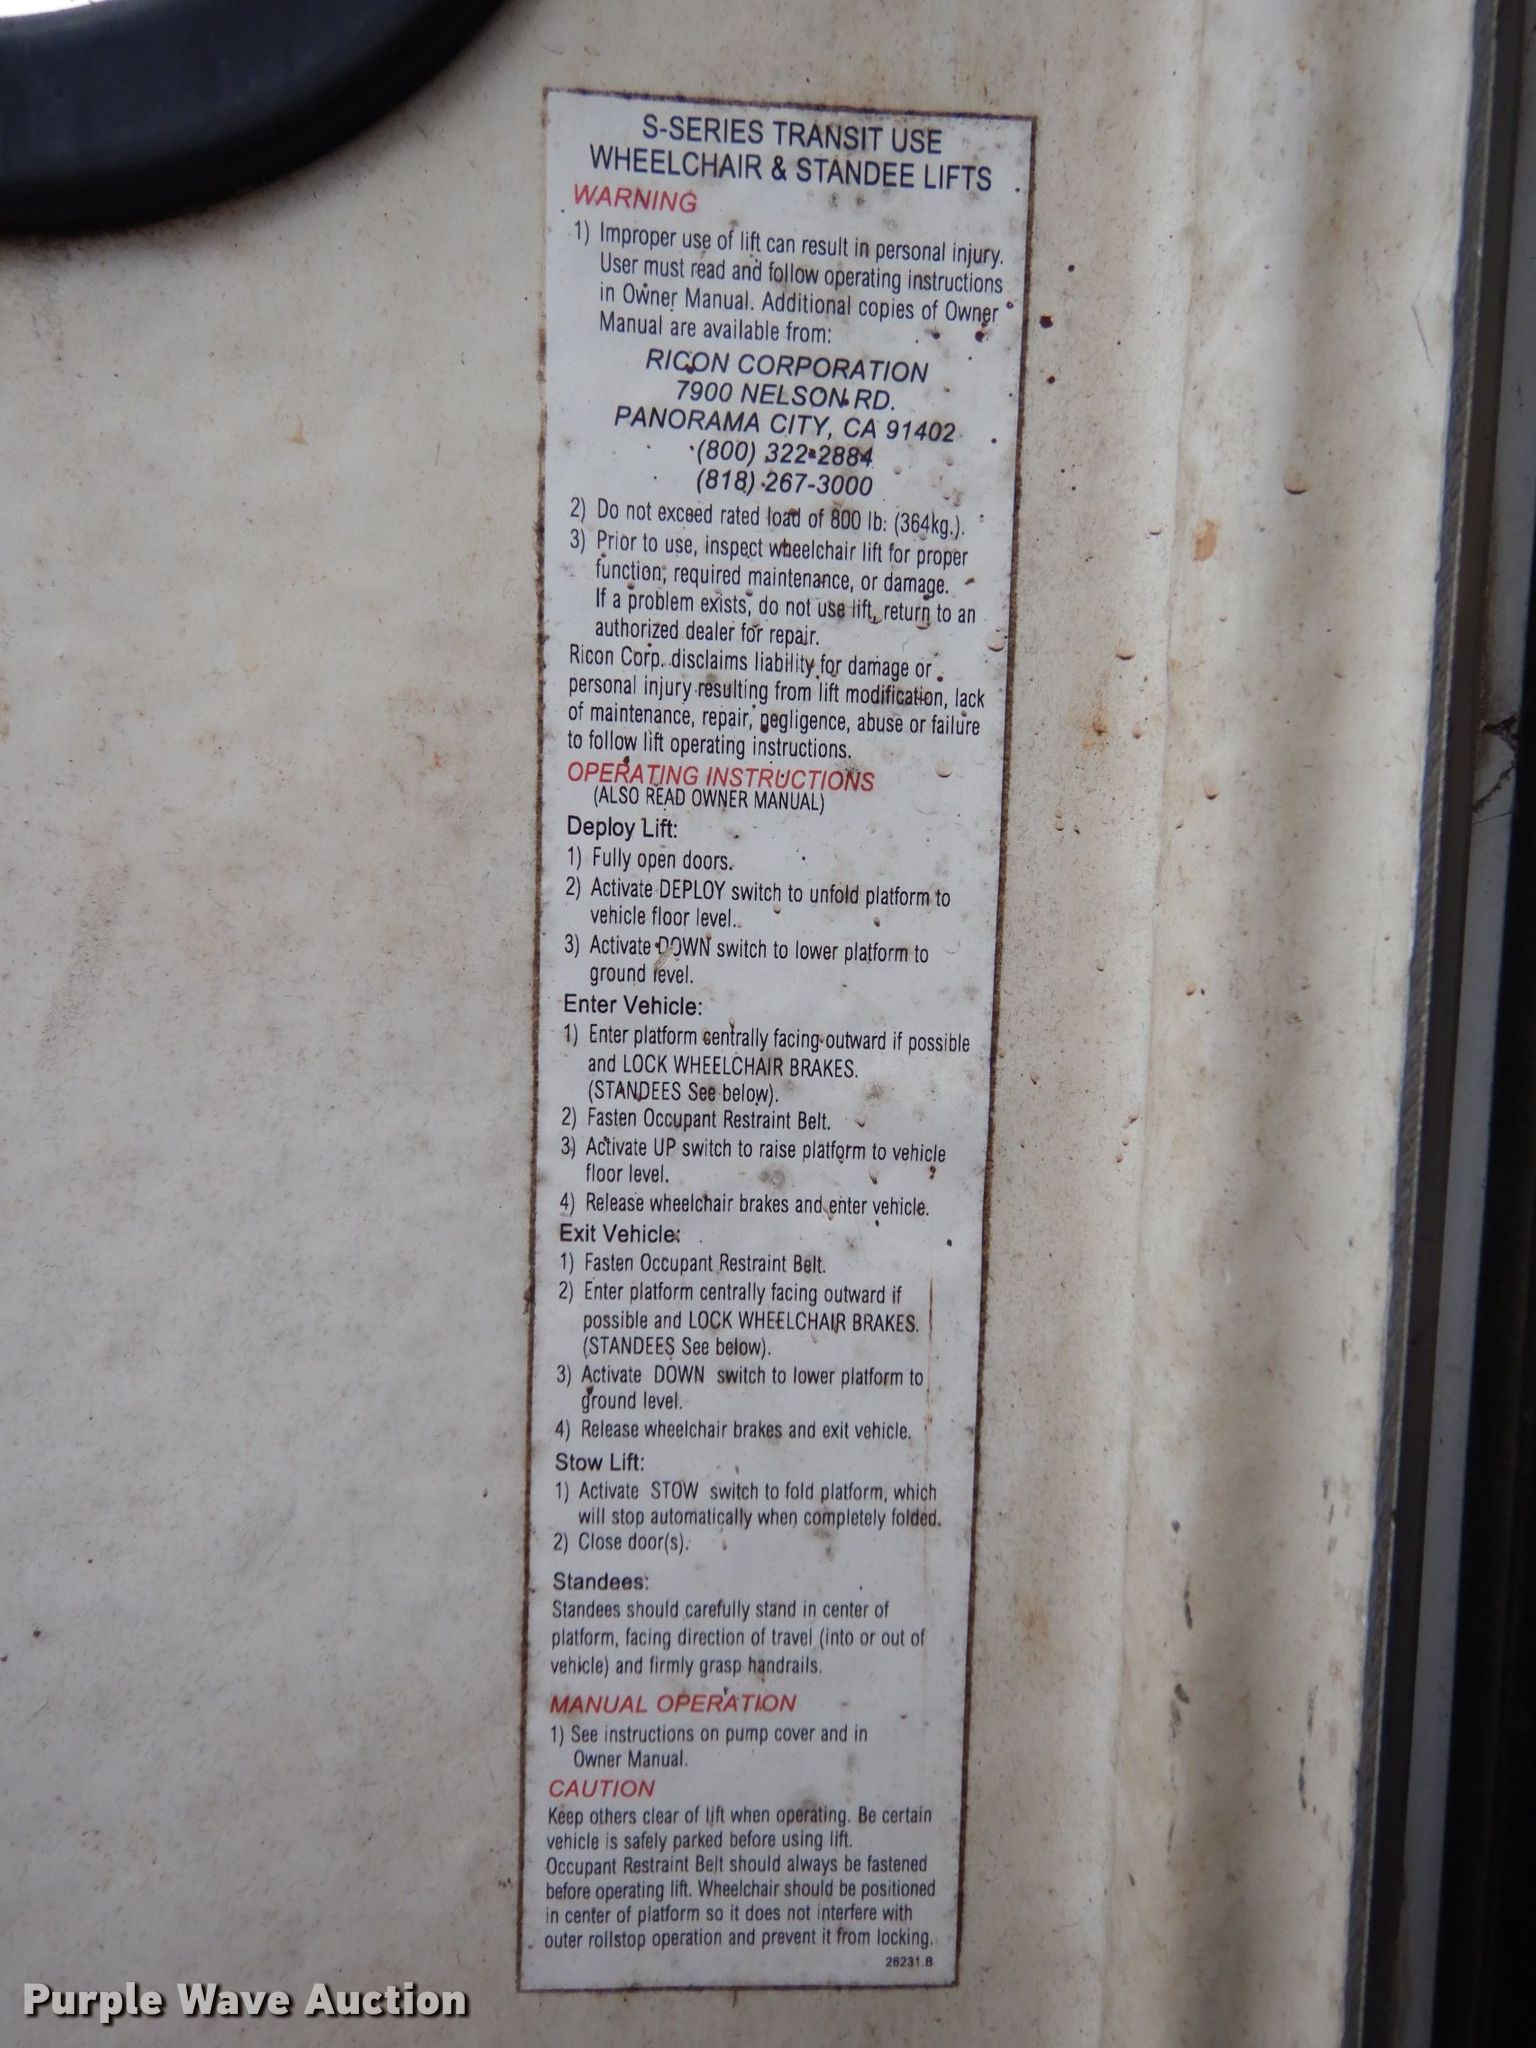 S-SERIES TRANSIT USE
WHEELCHAIR & STANDEE LIFTS
WARNING
1) Improper use of lift can result in personal injury.
User must read and follow operating instructions
in Owner Manual. Additional copies of Owner
Manual are available from:
RICON CORPORATION
7900 NELSON RD.
PANORAMA CITY, CA 91402
(800) 322-2884
(818) 267-3000
2) Do not exceed rated load of 800 lb. (364kg.).
3) Prior to use, inspect wheelchair lift for proper
function, required maintenance, or damage.
If a problem exists, do not use lift, return to an
authorized dealer for repair.
Ricon Corp. disclaims liability for damage or
personal injury resulting from lift modification, lack
of maintenance, repair, negligence, abuse or failure
to follow lift operating instructions.
OPERATING INSTRUCTIONS
(ALSO READ OWNER MANUAL)
Deploy Lift:
1) Fully open doors.
2) Activate DEPLOY switch to unfold platform to
vehicle floor level.
3) Activate DOWN switch to lower platform to
ground level.
Enter Vehicle:
1) Enter platform centrally facing outward if possible
and LOCK WHEELCHAIR BRAKES.
(STANDEES See below).
2) Fasten Occupant Restraint Belt.
3) Activate UP switch to raise platform to vehicle
floor level.
4) Release wheelchair brakes and enter vehicle.
Exit Vehicle:
1) Fasten Occupant Restraint Belt.
2) Enter platform centrally facing outward if
possible and LOCK WHEELCHAIR BRAKES.
(STANDEES See below).
3) Activate DOWN switch to lower platform to
ground level.
4) Release wheelchair brakes and exit vehicle.
Stow Lift:
1) Activate STOW switch to fold platform, which
will stop automatically when completely folded.
2) Close door(s).
Standees:
Standees should carefully stand in center of
platform, facing direction of travel (into or out of
vehicle) and firmly grasp handrails.
MANUAL OPERATION
1) See instructions on pump cover and in
Owner Manual.
CAUTION
Keep others clear of lift when operating. Be certain
vehicle is safely parked before using lift.
Occupant Restraint Belt should always be fastened
before operating lift. Wheelchair should be positioned
in center of platform so it does not interfere with
outer rollstop operation and prevent it from locking.
26231.B
Purple Wave Auction